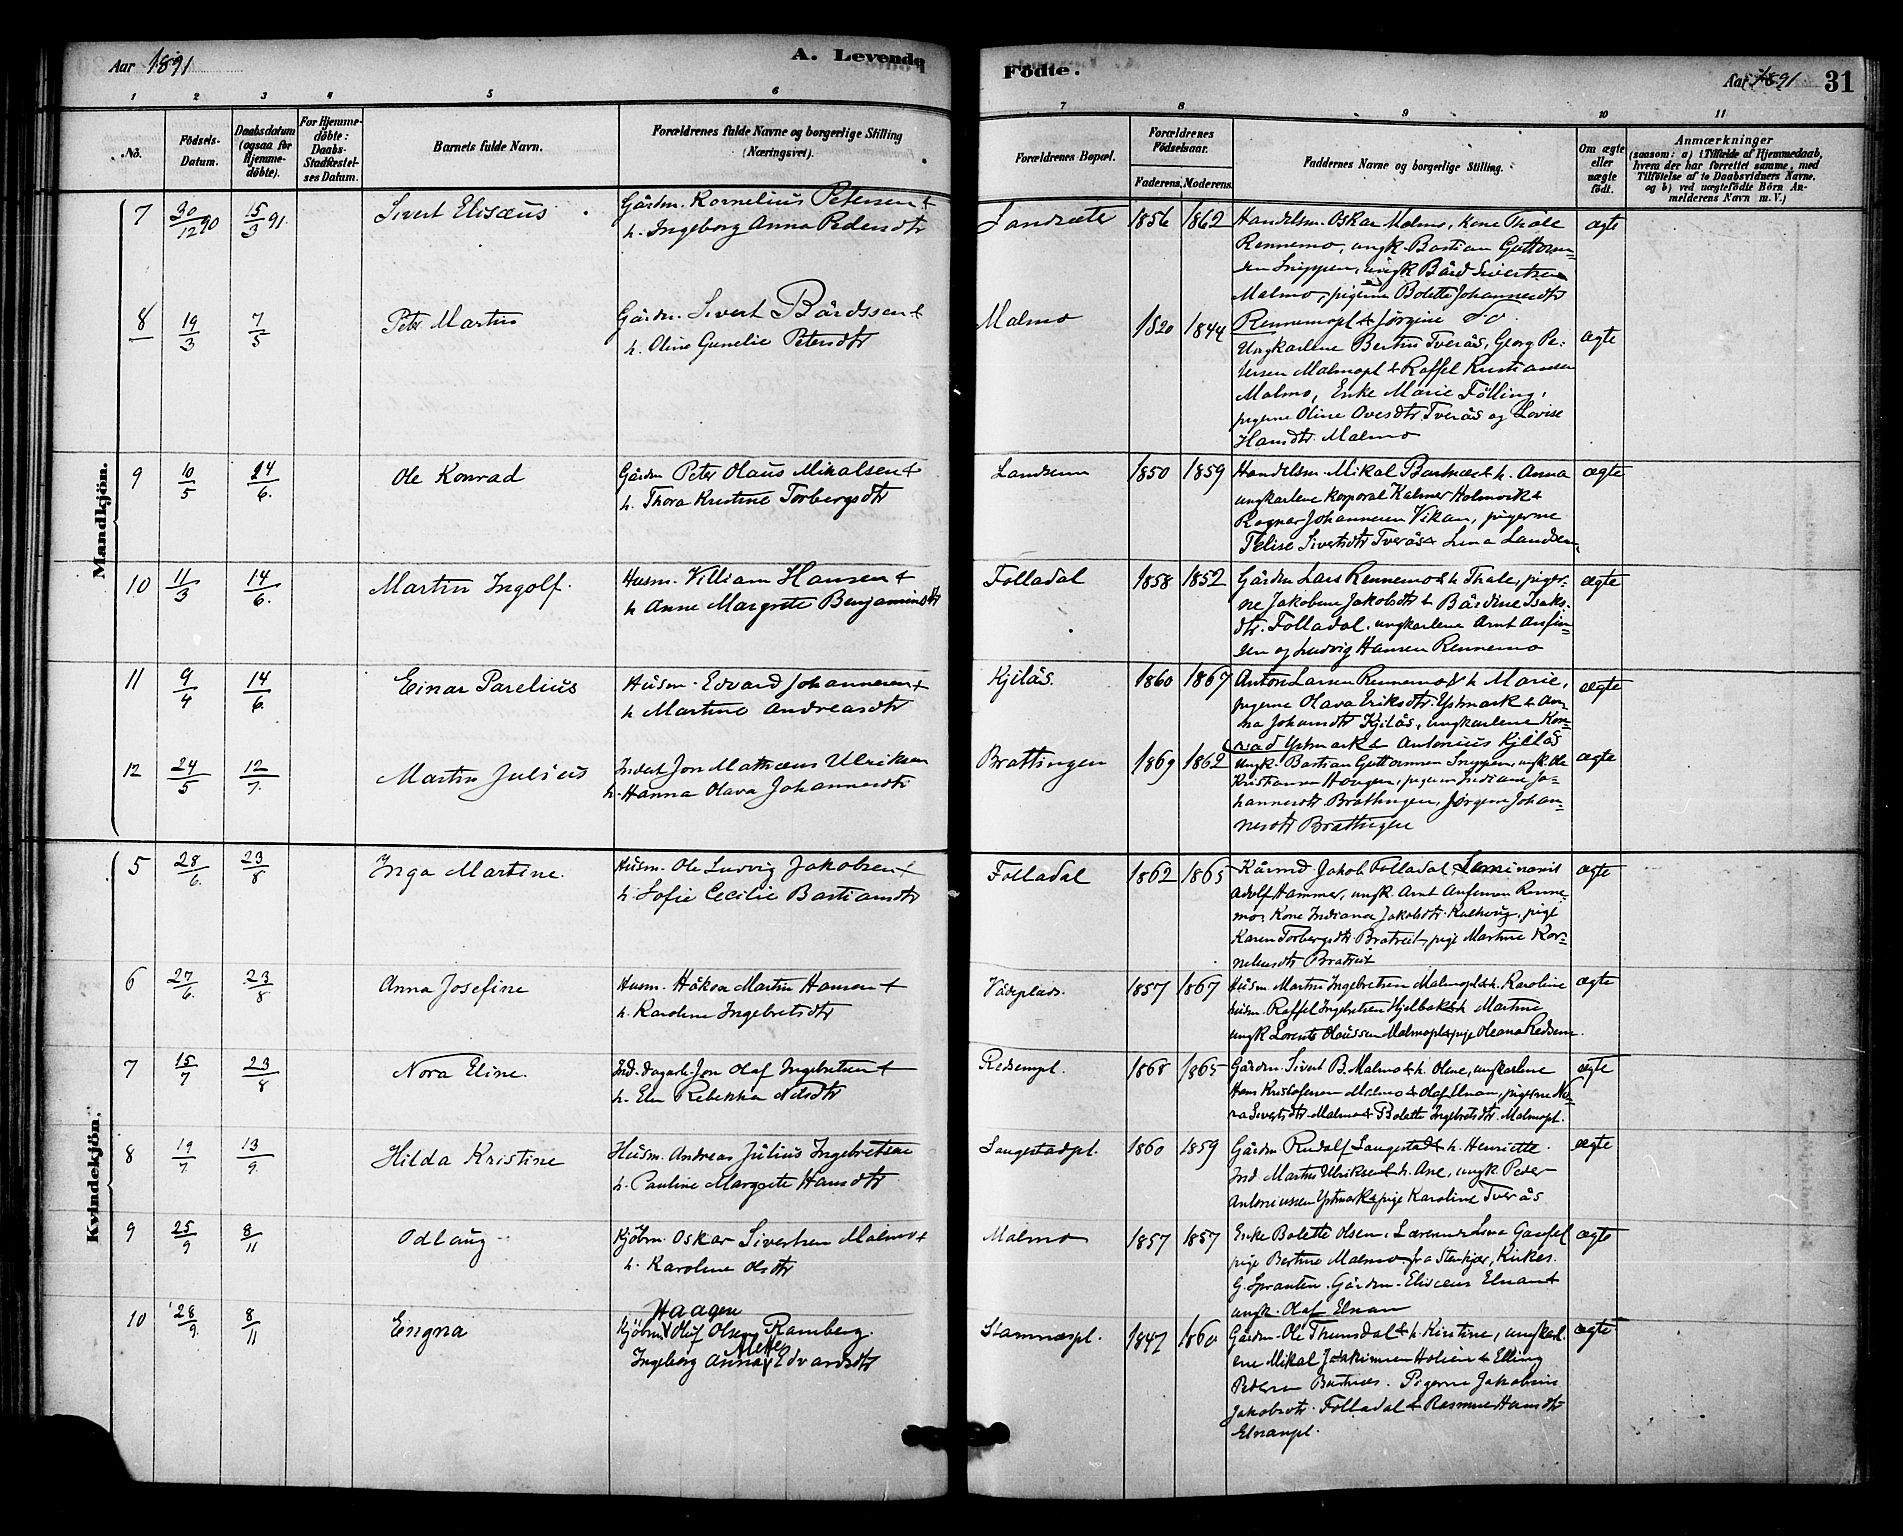 Aar 1891
A. Levende
Födte.
Aar 1891
31
1 2 3 4 5 6 7 8 9 10 11
No.
Födsels-
Datum.
Daabsdatum
(ogsaa for
Hjemme-
döbte).
For Hjemme-
döbte:
Daabs-
Stadfæstel-
ses Datum.
Barnets fulde Navn.
Forældrenes fulde Navne og borgerlige Stilling
(Næringsvei).
Forældrenes Bopæl.
Forældrenes
Födselsaar.
Faderens. Moderens.
Faddernes Navne og borgerlige Stilling.
Om ægte
eller
uægte
födt.
Anmærkninger
(saasom: a) i Tilfælde af Hjemmedaab,
hvem der har forrettet samme, med
Tilföielse af to Daabsvidners Navne,
og b) ved uægtefödte Börn An-
melderens Navn m. V.)
Mandkjön.
7 30/12 90 15/3 91 Sivert Elisæus
Gårdm. Kornelius Petersen &
h. Ingeborg Anna Pedersdtr
Landsæter 1856 1862 ægte
Handelsm. Oskar Malmo, kone Thale
Rennemo, ungk. Bastian Guttorm-
sen Snippen, ungk Bård Sivertsen
Malmo, pigerne Bolette Johannesdtr
Rennemopl & Jørgine do.
8 19/3 7/5 Peter Martin
Gårdm. Sivert Bårdssen &
h. Oline Gunelie Petersdtr
Malmo 1820 1844 ægte
Ungkarlene Bertin Tverås, Georg Pe-
tersen Malmopl & Raffel Kristiansen
Malmo, Enke Marie Fölling,
pigerne Oline Ovesdtr Tverås og Lovise
Hansdtr. Malmo
9 10/5 14/6. Ole Konrad
Gårdm Peter Olaus Mikalsen &
h. Thora Kristine Torbergsdtr
Landsem 1850 1859 ægte
Handelsm. Mikal Bartnæs & h. Anna
ungkarlene korporal Kalmer Holmvik &
Ragnar Johannesen Vikan, pigerne
Telise Sivertsdtr Tverås & Lina Landsem.
10 11/3 14/6. Martin Ingolf.
Husm. Villiam Hansen &
h Anne Margrete Benjaminsdtr
Folladal 1858 1852 ægte
Gårdm Lars Rennemo & h Thale, piger-
ne Jakobine Jakobsdtr & Bårdine Isaks-
dtr. Folladal. ungkarlene Arnt Anfin-
sen og Ludvig Hansen Rennemo
11 9/4 14/6. Einar Parelius
Husm. Edvard Johannesen &
h Martine Andreasdtr
Kjilås. 1860 1867 ægte
Anton Larsen Rennemo & h Marie,
pigerne Olava Eriksdtr. Ystmark & An-
na Johansdtr Kjilås, ungkarlene Kon-
rad Ystmark & Antonius Kjilås
12 24/5 12/7. Martin Julius
Inderst Jon Mathæus Ulriksen
h. Hanna Olava Johannesdtr
Brattingen 1869 1862 ægte
Ungk. Bastian Guttormsen Snippen, ungk Ole
Kristiansen Haugen, pigerne Indiane Jo-
hannesdtr. Brattingen, Jørgine Johan-
nesdtr Brattingen
Kvindekjön.
5 28/6. 23/8 Inga Martine.
Husm. Ole Ludvig Jakobsen &
h. Sofie Cecilie Bastiansdtr
Folladal 1862 1865 ægte
Kårmd Jakob Folladal, Seminarist
Adolf Hammer, ungk. Arnt Anfinsen Renne-
mo, Kone Indiana Jakobsdtr. , pige
Karen Torbergsdtr Bratreit, pige Martine Kor-
neliusdtr Bratreit
6 27/6. 23/8 Anna Josefine
Husm. Håkon Martin Hansen &
h. Karoline Ingebretsdtr
1857 1867 ægte
Husm. Martin Ingebretsen Malmopl & h. Karoline
husm. Raffel Ingebretsen Hjelbak & h Martine
ungk Lorents Olaussen Malmopl & pige Oleana Redsem.
7 15/7 23/8 Nora Eline.
Ind. dagarb. Jon Olaf Ingebretsen &
h. Elen Rebekka Nilsdtr
Redsempl. 1868 1865 ægte
Gårdm. Sivert B. Malmo & h. Oline, ungkarlene
Hans Kristofersen Malmo & Olaf Elnan, pigerne No-
ra Sivertsdtr. Malmo & Bolette Ingebretsdtr. Malmopl.
8 19/7 13/9. Hilda Kristine
Husm. Andreas Julius Ingebretsen
h. Pauline Margrete Hansdtr
Langestadpl. 1860 1859 ægte
Gårdm. Rudolf Langestad & h. Henriette.
Ind Martin Ulriksen & h. Ane, ungk Peder
Antoniussen Ystmark & pige Karoline Tverås
9 25/9 8/11 Odlaug
Kjöbm. Oskar Sivertsen Malmo &
h. Karoline Olsdtr
Malmo 1857 1857 ægte
Enke Bolette Olsen, Lærerinde Lina
pige Bertine Malmo fra Stenkjær, Kirkes.
G. Sprauten. Gårdm. Elisæus Elnan &
ungk. Olaf Elnan
10 28/9. 8/11 Engna
Haagen
Kjöbm Oluf Olsen Ramberg.
Mette
Ingeborg Anna Edvardsdtr
Stamnæspl. 1847 1860 ægte
Gårdm. Ole Thunsdal & h. Kirstine, ungkarl-
ene Mikal Joakimsen Holien & Elling
Pedersen Bartnæs. Pigerne Jakobine
Jakobsdtr. Folladal & Rasmine Hansdtr
Elnanpl.